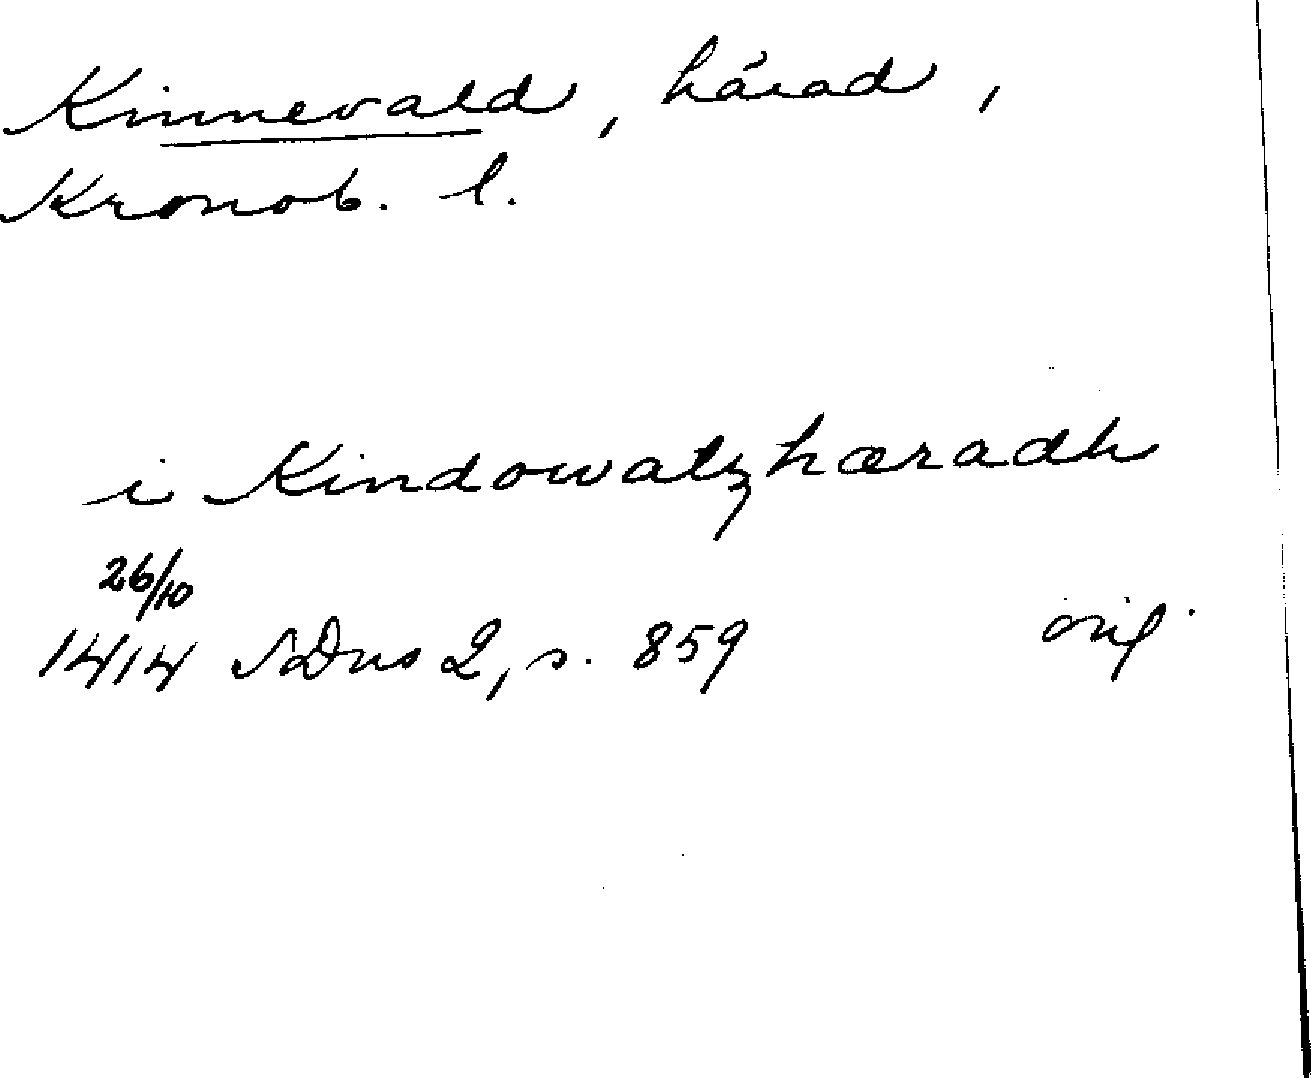 Kinnevald, härad,
Kronob. l.
i Kindowatzhæradh
26/10
1414 SDns 2, s. 859 orig.